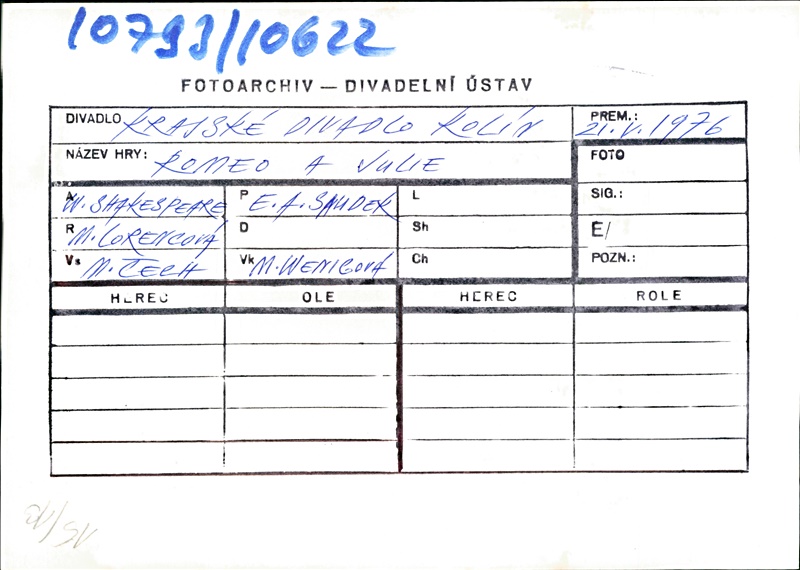 10793/10622
FOTOARCHIV — DIVADELNÍ ÚSTAV
DIVADLO KRAJSKÉ DIVADLO KOLÍN
PREM.: 21.V.1976
NÁZEV HRY: ROMEO A JULIE
FOTO
A W. SHAKESPEARE P E. A. SAUDEK L
SIG.:
R M. LORENCOVÁ D Sh
E/
Vs M. ČECH Vk M. WENIGOVÁ Ch
POZN.:
HEREC OLE HEREC ROLE